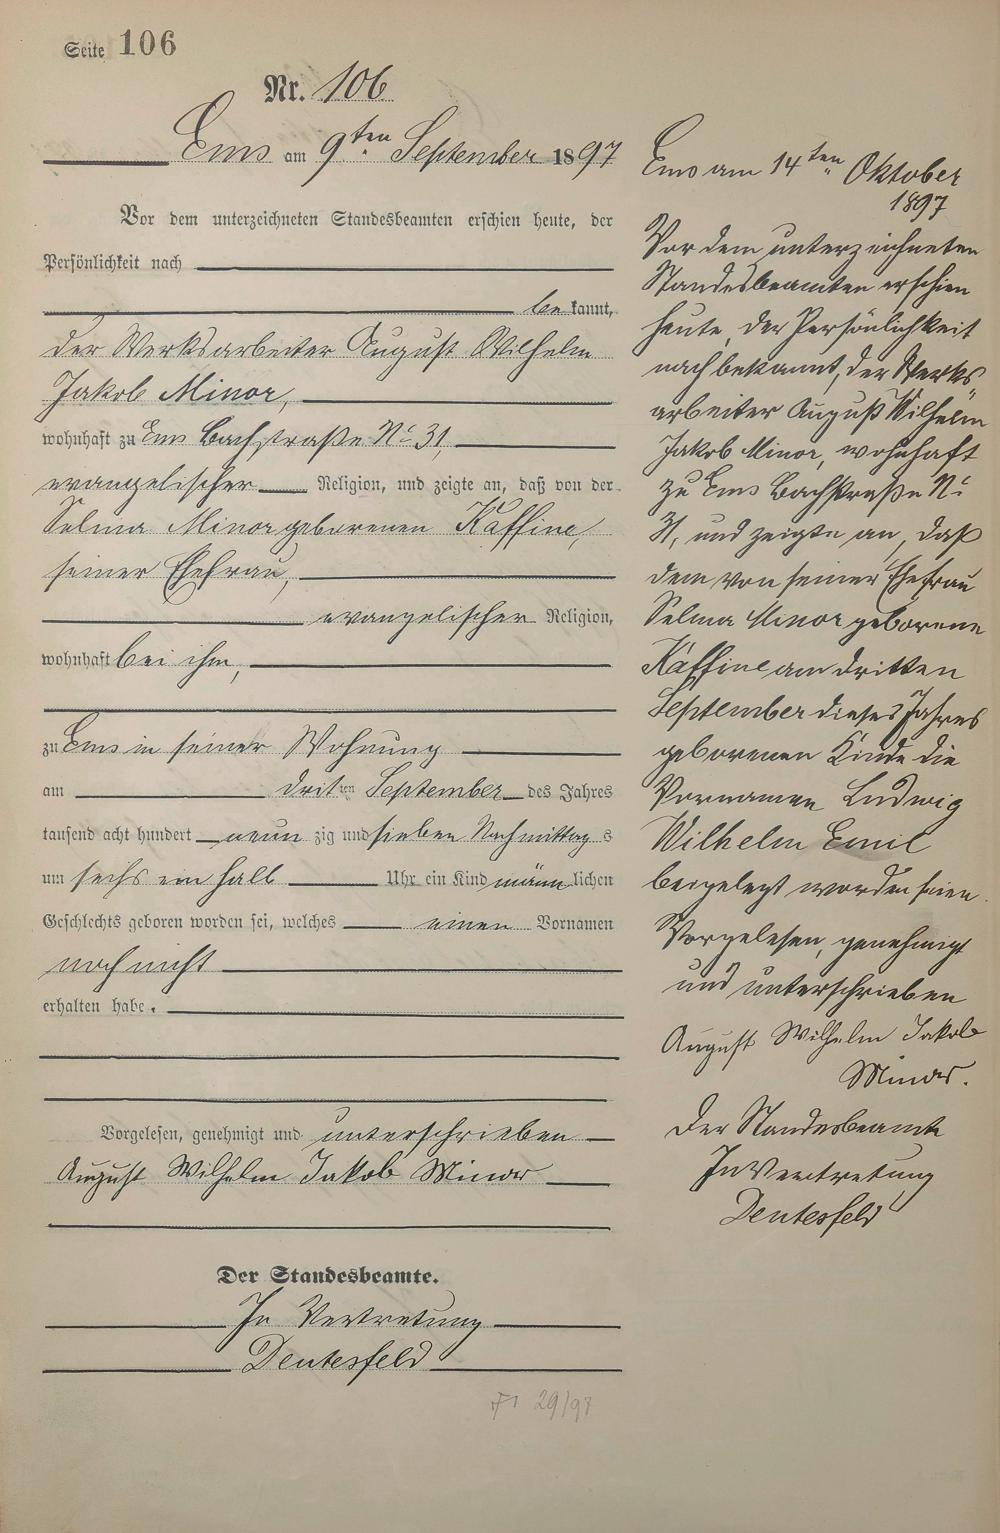 Seite 106
Nr. 106
Ems am 9ten September 1897
Vor dem unterzeichneten Standesbeamten erschien heute, der
Persönlichkeit nach
bekannt,
der Werksarbeiter August Wilhelm
Jakob Minor,
wohnhaft zu Ems Bachstraße No 31,
evangelischer Religion, und zeigte an, daß von der
Selma Minor geborenen Kaffine,
seiner Ehefrau,
evangelischer Religion,
wohnhaft bei ihm,
zu Ems in seiner Wohnung
am dritten September des Jahres
tausend acht hundert neunzig und sieben Nachmittags
um sechs ein halb Uhr ein Kind männlichen
Geschlechts geboren worden sei, welches einen Vornamen
noch nicht
erhalten habe.
Vorgelesen, genehmigt und unterschrieben
August Wilhelm Jakob Minor
Der Standesbeamte.
In Vertretung
Deutesfeld
29/97
Ems am 14ten Oktober
1897
Vor dem unterzeichneten
Standesbeamten erschien
heute, der Persönlichkeit
nach bekannt, der Werks
arbeiter August Wilhelm
Jakob Minor, wohnhaft
zu Ems Bachstraße No
31, und zeigte an, daß
dem von seiner Ehefrau
Selma Minor geborene
Kaffine am dritten
September dieses Jahres
geborenen Kinde die
Vornamen Ludwig
Wilhelm Emil
beigelegt worden seien.
Vorgelesen, genehmigt
und unterschrieben
August Wilhelm Jakob
Minor.
Der Standesbeamte
In Vertretung
Deutesfeld